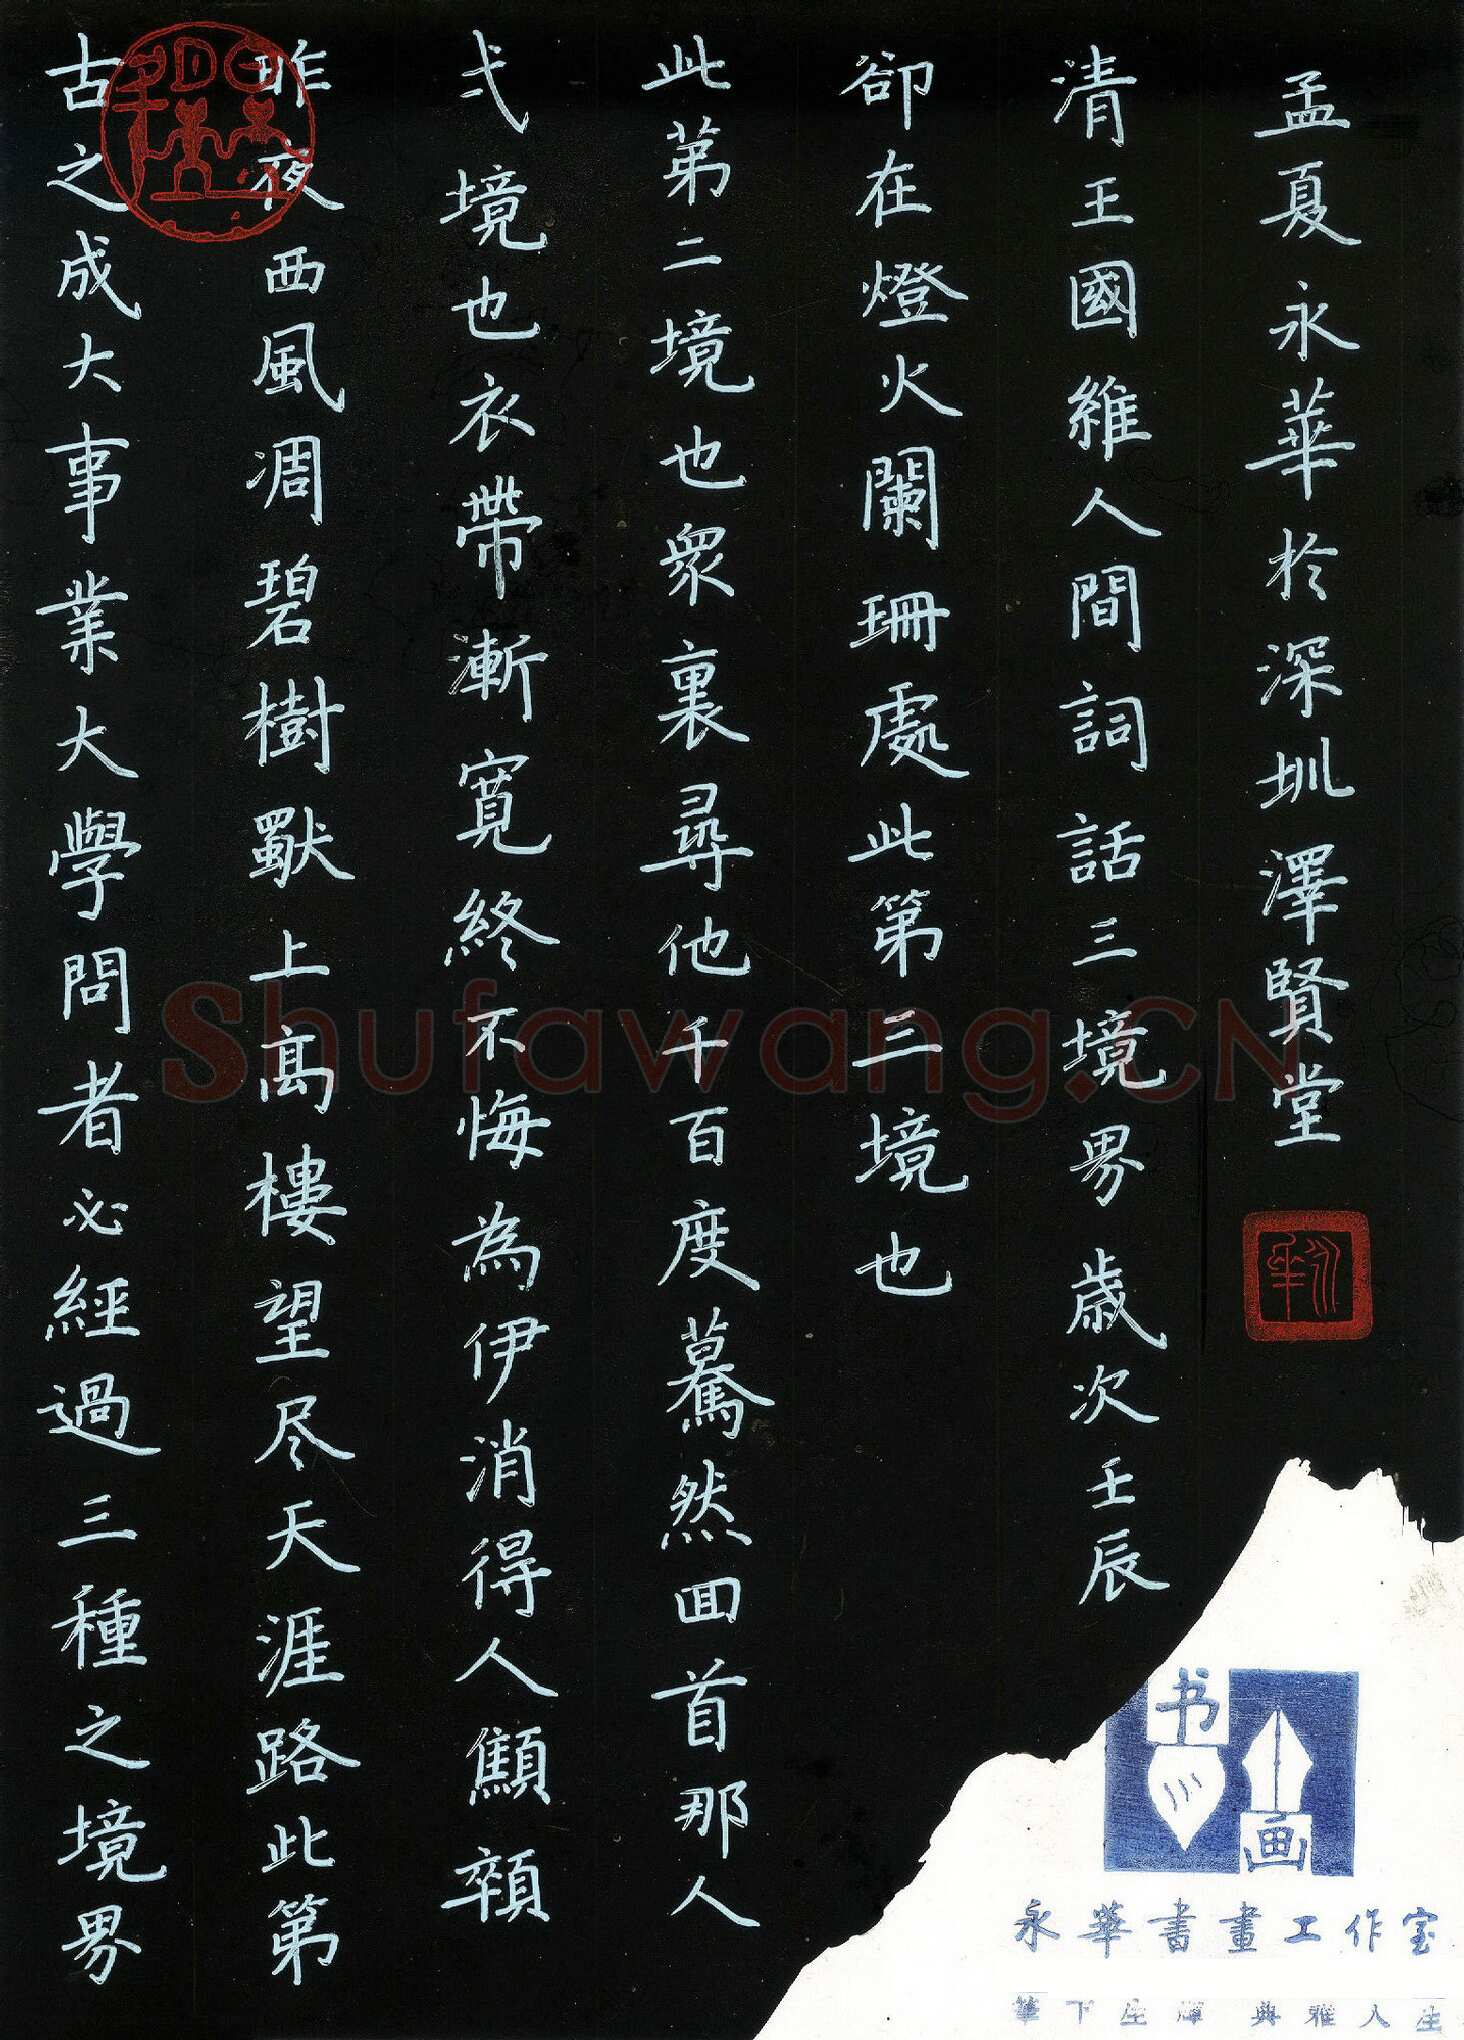 古之成大事業大學問者必經過三種之境界
昨夜西風凋碧樹獨上高樓望尽天涯路此第
弌境也衣帶漸寬終不悔為伊消得人顦顇
此第二境也眾裏尋他千百度驀然囬首那人
卻在燈火闌珊處此第三境也
清王國維人間詞話三境界歲次壬辰
孟夏永華於深圳澤賢堂
书画
永華書畫工作室
筆下生輝 典雅人生
Shufawang.CN